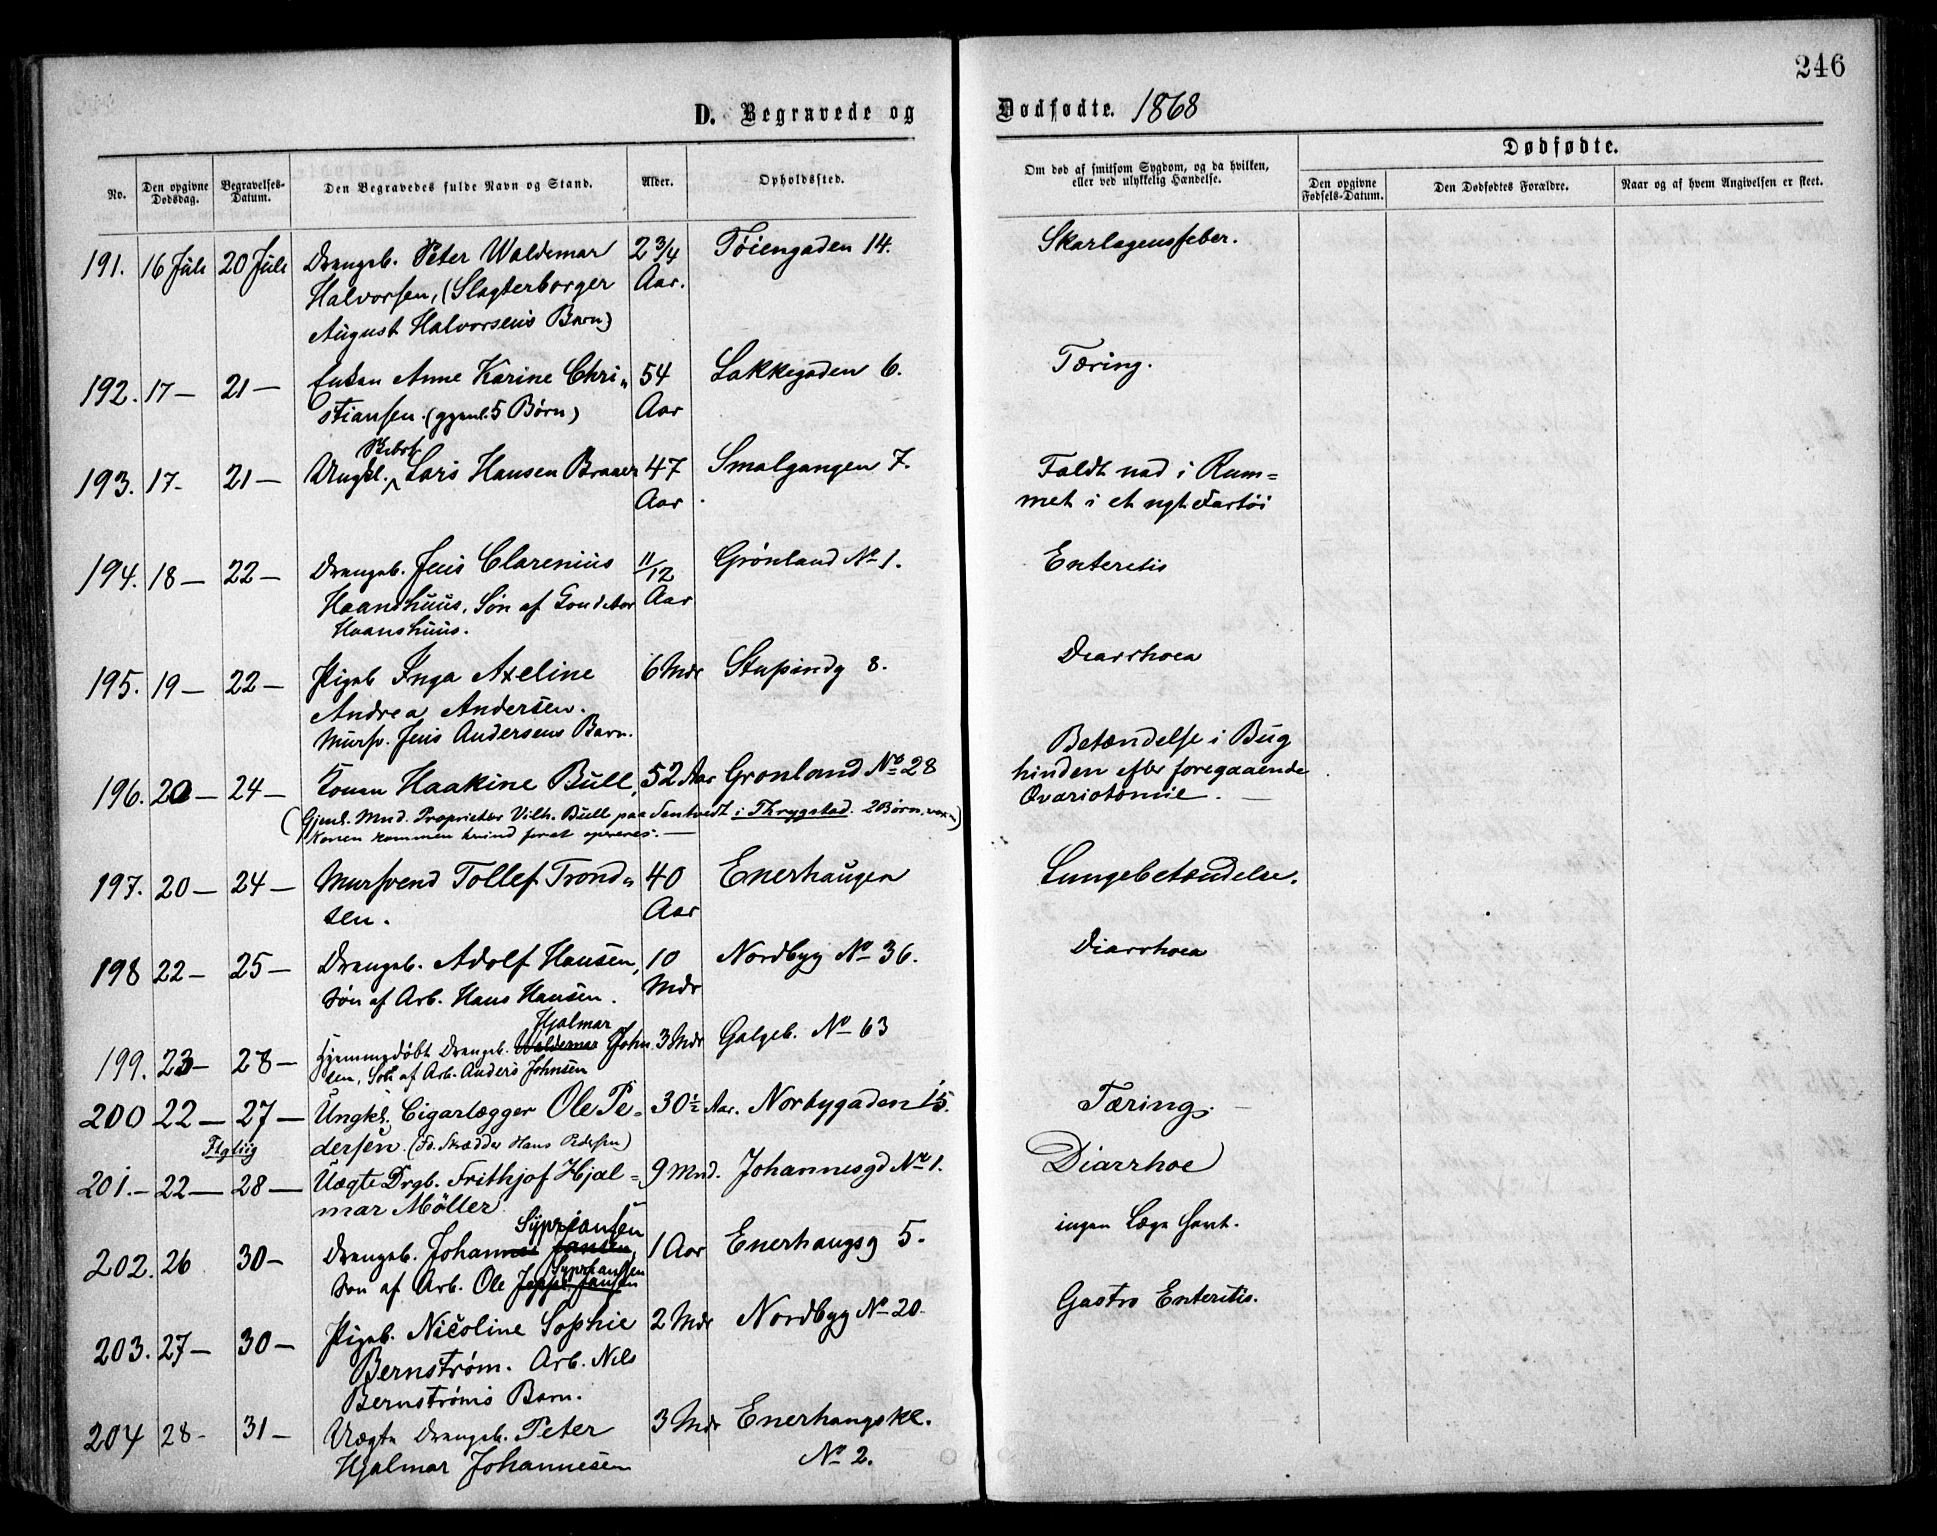 246
D. Begravede og Dødfødte. 1868
No.
Den opgivne Dødsdag.
Begravelses-Datum.
Den Begravedes fulde Navn og Stand.
Alder.
Opholdssted.
Om død af smitsom Sygdom, og da hvilken, eller ved ulykkelig Hændelse.
Dødfødte.
Den opgivne Fødsels-Datum.
Den Dødfødtes Forældre.
Naar og af hvem Angivelsen er skeet.
191. 16 Juli 20 Juli Drengeb. Peter Waldemar 2 3/4 Tøiengaden 14. Skarlagensfeber.
Halvorsen, (Slagterborger Aar.
August Halvorsens Barn)
192. 17 — 21 — Enken Anne Karine Chri„ 54 Lakkegaden 6. Tæring.
stiansen. (gjenl. 5 Børn) Aar
193. 17 - 21 — Ungkl. Lars Hansen Braaer 47 Smalgangen 7. Faldt ned i Rum=
Aar met i et nyt Fartøi
194. 18 — 22 — Drengeb. Jens Clarenius 11/12 Grønland No 1. Enteretis
Haanshuus, Søn af Konduktør Aar
Haanshuus.
195. 19 — 22 — Pigeb Inga Axeline 6 Mdr Stupindg 8. Diarrhoea
Andrea Andersen.
Mursv. Jens Andersens Barn.
196. 20 — 24 — Konen Haakine Bull, 52 Aar Grønland No 28 Betændelse i Bug
hinden efter foregaaende
Ovariotomie. —
(Gjenl. Mnd. Proprietær Vilh. Bull paa i Thrygstad. 2 Børn, vox„)
Konen kommen herind forat opereres. —
197. 20 — 24 — Mursvend Tollef Trond„ 40 Enerhaugen Lungebetændelse.
sen. Aar
198 22 — 25 — Drengeb. Adolf Hansen, 10 Nordbyg No 36. Diarrhoea
Søn af Arb. Hans Hansen. Mdr
Hjalmar
199. 23 — 28 — Hjemmedøbt Drengeb. Waldemar John 3 Mdr Galgeb. No 63
sen, Søn af Arb. Anders Johnsen
200 22 — 27 — Ungkl. Cigarlægger Ole Pe= 30 1/2 Aar. Norbygaden 15. Tæring. —
dersen. (Fd. Skrædder Hans Pedersen)
201. — 22 — 28 — Uægte Drgb. Frithjof Hjal= 9 Mnd. Johannesgd No 1. Diarrhoe
mar Möller
Sypriansen
202. 26 30 — Drengeb. Johannes Jansen, 1 Aar Enerhaugsg 5. ingen Læge havt.
Sypriansen
Søn af Arb. Ole Jeppe Jansen
203. 27 — 30 — Pigeb. Nicoline Sophie 2 Mdr Nordbyg No 20. Gastro Enteritis.
Bernstrøm. Arb. Nils
Bernstrøms Barn.
204 28 - 31 — Uægte Drengeb. Peter 3 Mdr Enerhaugskl.
Hjalmar Johannesen No 2.